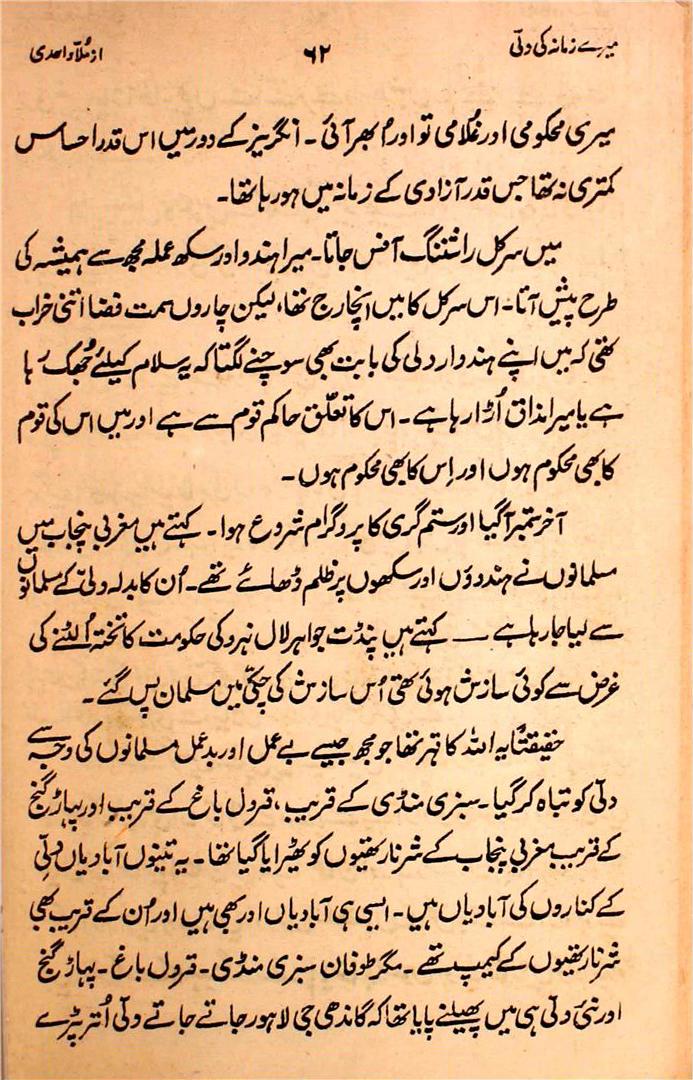 میرے زمانہ کی دلّی ۶۲ از مُلّا واحدی
میری محکومی اور غُلامی تو اور اُبھر آئی۔ انگریز کے دور میں اس قدر احساس
کمتری نہ تھا جس قدر آزادی کے زمانہ میں ہو رہا تھا۔
میں سرکل راشننگ آفس جاتا۔ میرا ہندو اور سکھ عملہ مجھ سے ہمیشہ کی
طرح پیش آتا۔ اس سرکل کا میں انچارج تھا، لیکن چاروں سمت فضا اتنی خراب
تھی کہ میں اپنے ہندو اردلی کی بابت بھی سوچنے لگتا کہ یہ سلام کیلئے جُھک رہا
ہے یا میرا مذاق اُڑا رہا ہے۔ اس کا تعلّق حاکم قوم سے ہے اور میں اس کی قوم
کا بھی محکوم ہوں اور اِس کا بھی محکوم ہوں۔
آخر ستمبر آگیا اور ستم گری کا پروگرام شروع ہوا۔ کہتے ہیں مغربی پنجاب میں
مسلمانوں نے ہندوؤں اور سکھوں پر ظلم ڈھائے تھے۔ اُن کا بدلہ دلّی کے مسلمانوں
سے لیا جا رہا ہے — کہتے ہیں پنڈت جواہر لال نہرو کی حکومت کا تختہ اُلٹنے کی
غرض سے کوئی سازش ہوئی تھی اُس سازش کی چکّی میں مسلمان پس گئے۔
حقیقتًا یہ اللہ کا قہر تھا جو مجھ جیسے بے عمل اور بد عمل مسلمانوں کی وجہ سے
دلّی کو تباہ کر گیا۔ سبزی منڈی کے قریب، قرول باغ کے قریب اور پہاڑ گنج
کے قریب مغربی پنجاب کے شرنارتھیوں کو ٹھیرایا گیا تھا۔ یہ تینوں آبادیاں دلّی
کے کناروں کی آبادیاں ہیں۔ ایسی ہی آبادیاں اور بھی ہیں اور اُن کے قریب بھی
شرنارتھیوں کے کیمپ تھے۔ مگر طوفان سبزی منڈی۔ قرول باغ۔ پہاڑ گنج
اور نئی دلّی ہی میں پھیلنے پایا تھا کہ گاندھی جی لاہور جاتے جاتے دلّی اُتر پڑے